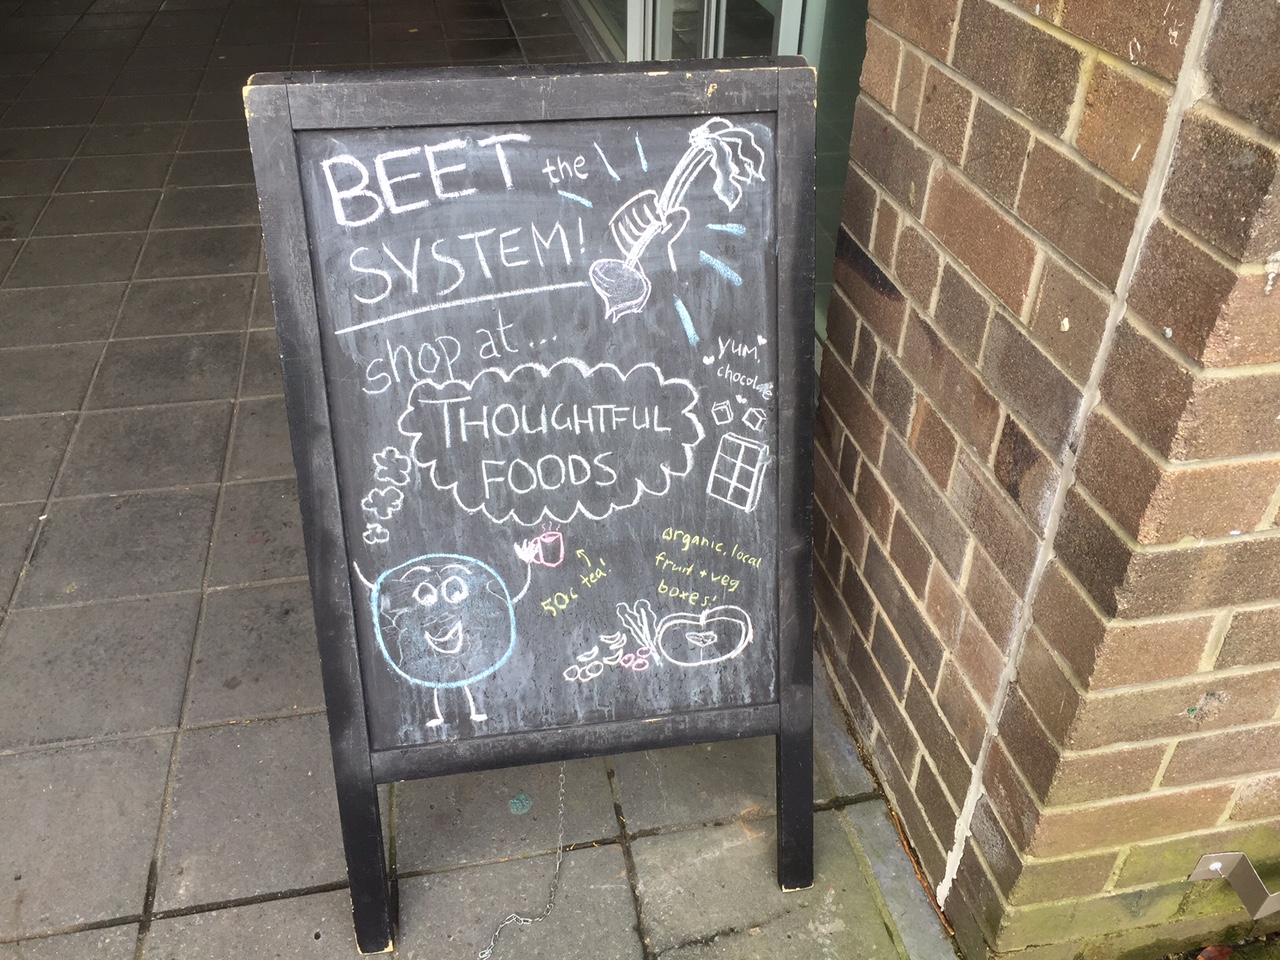 BEET the
SYSTEM!
shop at...
THOUGHTFUL
FOODS
YUM,
chocolate
50c tea!
organic, local
fruit + veg
boxes!